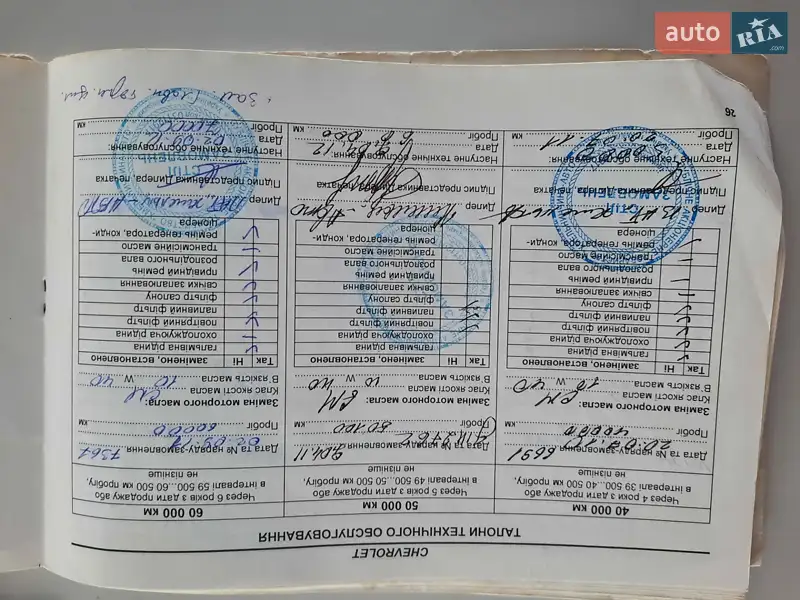 auto RIA.com
CHEVROLET
ТАЛОНИ ТЕХНІЧНОГО ОБСЛУГОВУВАННЯ
40 000 КМ
Через 4 роки з дати продажу або
в інтервалі 39 500...40 500 км пробігу,
не пізніше
Дата та № наряду-замовлення 6691
Пробіг 40000 км
Заміна моторного масла:
Клас якості масла SM
В'язкість масла 10 W 40
Так Ні Замінено, встановлено
гальмівна рідина
охолоджуюча рідина
повітряний фільтр
паливний фільтр
фільтр салону
свічки запалювання
привідний ремінь
розподільного вала
трансмісійне масло
ремінь генератора, конди-
ціонера
Дилер
Підпис представника Дилера, печатка
Наступне технічне обслуговування:
Дата
Пробіг км
50 000 КМ
Через 5 років з дати продажу або
в інтервалі 49 500...50 500 км пробігу,
не пізніше
Дата та № наряду-замовлення
Пробіг 50100 км
Заміна моторного масла:
Клас якості масла SM
В'язкість масла 10 W 40
Так Ні Замінено, встановлено
гальмівна рідина
охолоджуюча рідина
повітряний фільтр
паливний фільтр
фільтр салону
свічки запалювання
привідний ремінь
розподільного вала
трансмісійне масло
ремінь генератора, конди-
ціонера
Дилер
Підпис представника Дилера, печатка
Наступне технічне обслуговування:
Дата
Пробіг км
60 000 КМ
Через 6 років з дати продажу або
в інтервалі 59 500...60 500 км пробігу,
не пізніше
Дата та № наряду-замовлення 7367
Пробіг 60000 км
Заміна моторного масла:
Клас якості масла SM
В'язкість масла 10 W 40
Так Ні Замінено, встановлено
гальмівна рідина
охолоджуюча рідина
повітряний фільтр
паливний фільтр
фільтр салону
свічки запалювання
привідний ремінь
розподільного вала
трансмісійне масло
ремінь генератора, конди-
ціонера
Дилер
Підпис представника Дилера, печатка
Наступне технічне обслуговування:
Дата
Пробіг км
26